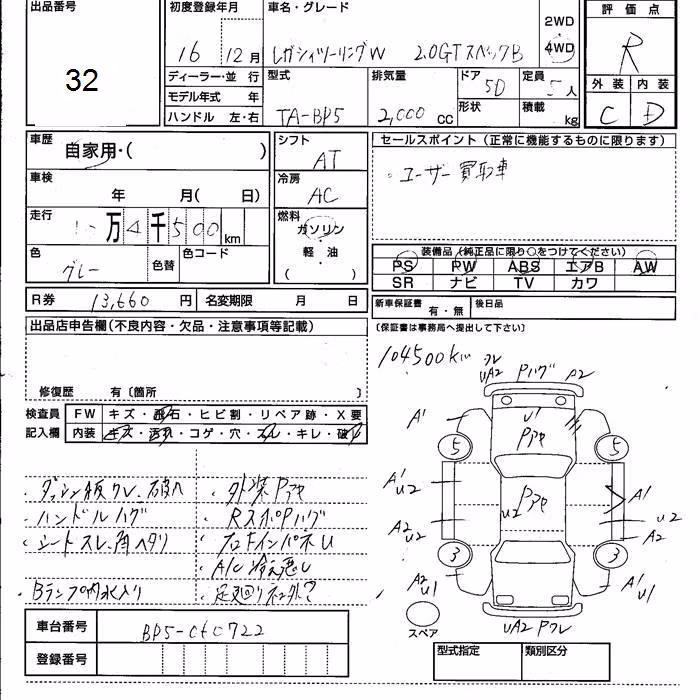 出品番号
32
初度登録年月
16年 12月
ディーラー・並 行
モデル年式 年
ハンドル 左・右
車名・グレード
レガシィツーリングW 2.0GTスペックB
2WD
4WD
型式
TA-BP5
排気量
2,000 cc
ドア
5D
形状
定員
5人
積載
kg
評価点
R
外装 内装
C D
車歴
自家用・( )
車検
年 月( 日)
走行
1 0 万 4 千 5 0 0 km
色
グレー
色替
色コード
シフト
AT
冷房
AC
燃料
ガソリン
・
軽 油
( )
セールスポイント(正常に機能するものに限ります)
・ユーザー買取車
装備品(純正品に限り○をつけてください)
PS PW ABS エアB AW
SR ナビ TV カワ
R券 13,660 円 名変期限 月 日
新車保証書 有・無 後日品
(保証書は事務局へ提出して下さい)
出品店申告欄(不良内容・欠品・注意事項等記載)
修復歴 有〔箇所 〕
検査員 FW キズ・飛石・ヒビ割・リペア跡・X要
記入欄 内装 キズ・汚れ・コゲ・穴・スレ・キレ・破レ
・ダッシュ板ワレ・破れ
・ハンドルハゲ
・シートスレ、角ヘタリ
・Bランプ内水入り
・外装Pアセ
・RスポPハゲ
・フロントインパネし
・A/C冷え悪し
・足廻り社外?
車台番号 BP5-060722
登録番号
104500km
ワレ
UA2 Pハゲ A2
A1
U1
Pアセ
5 5
A1
U2
Pアセ
U2
A1
A2
U2
U2
A2
3 3
A2
U1
A1
U1
UA2 Pワレ
スペア
型式指定 類別区分